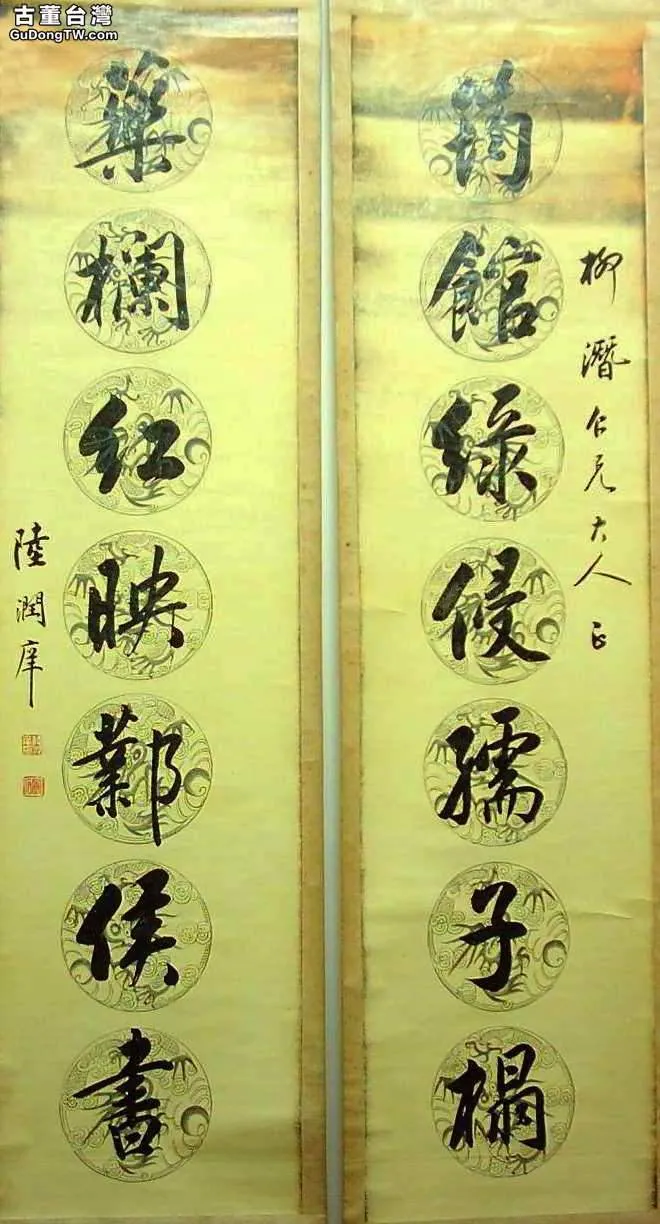 古董台灣
GuDongTW.com
柳潛仁兄大人正
筠館綠侵孺子榻
藥欄紅映鄴侯書
陸潤庠